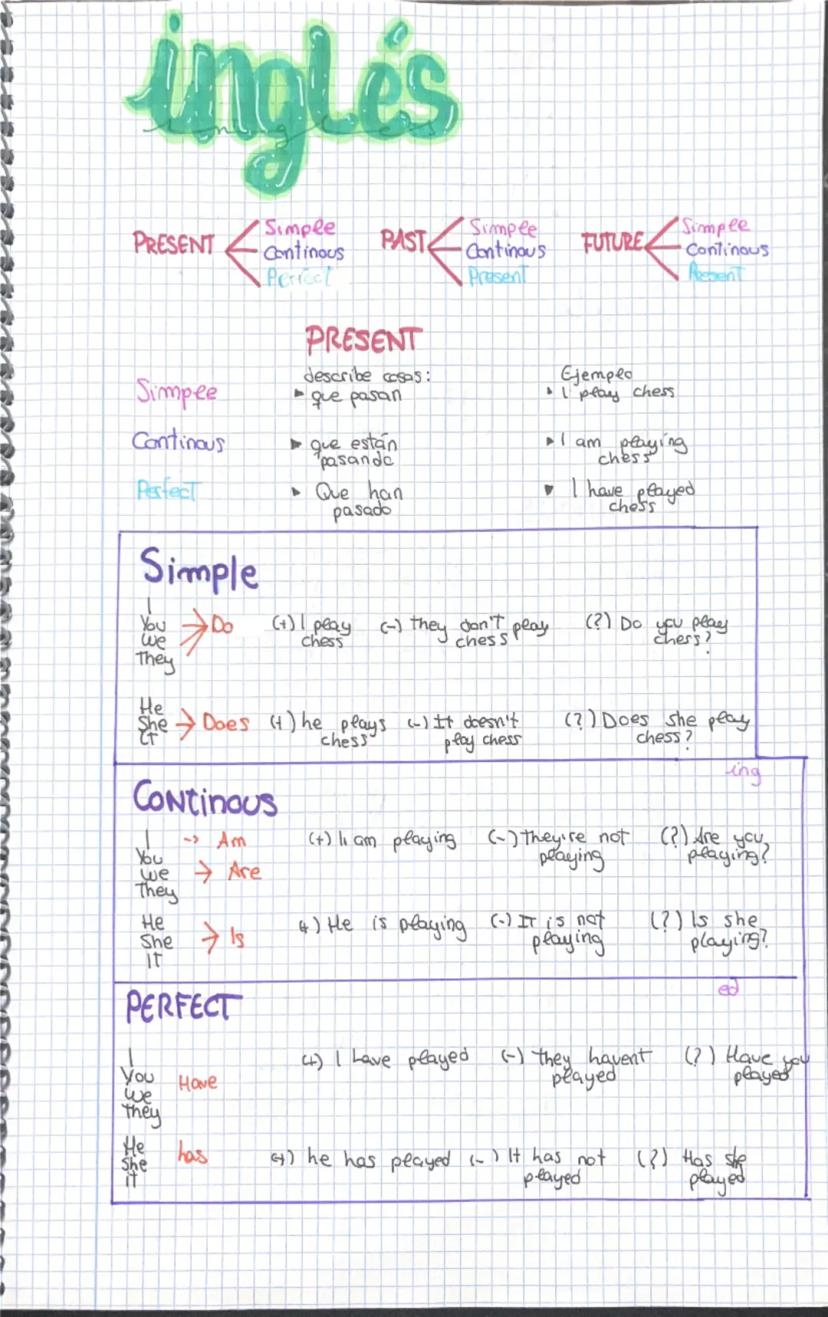 inglés
PRESENT
Simple
Continous
Perfect
PAST
Simple
Continous
Present
FUTURE
Simple
Continous
Present
PRESENT
describe cosas:
Ejemplo
Simple
▸ que pasan
▸ I play chess
Continous
▸ que están
pasando
▸ I am playing
chess
Perfect
▸ Que han
pasado
▸ I have played
chess
Simple
I
You
We
They
Do
(+) I play
chess
(-) they don't play
chess
(?) Do you play
chess?
He
She
IT
Does
(+) he plays
chess
(-) It doesn't
play chess
(?) Does she play
chess?
ing
Continous
I
You
We
They
Am
Are
(+) I am playing
(-) They're not
playing
(?) Are you
playing?
He
She
IT
Is
(+) He is playing
(-) IT is not
playing
(?) Is she
playing?
ed
PERFECT
I
You
We
they
Have
(+) I have played
(-) they havent
played
(?) Have you
played
He
She
IT
has
(+) he has played
(-) It has not
played
(?) Has she
played